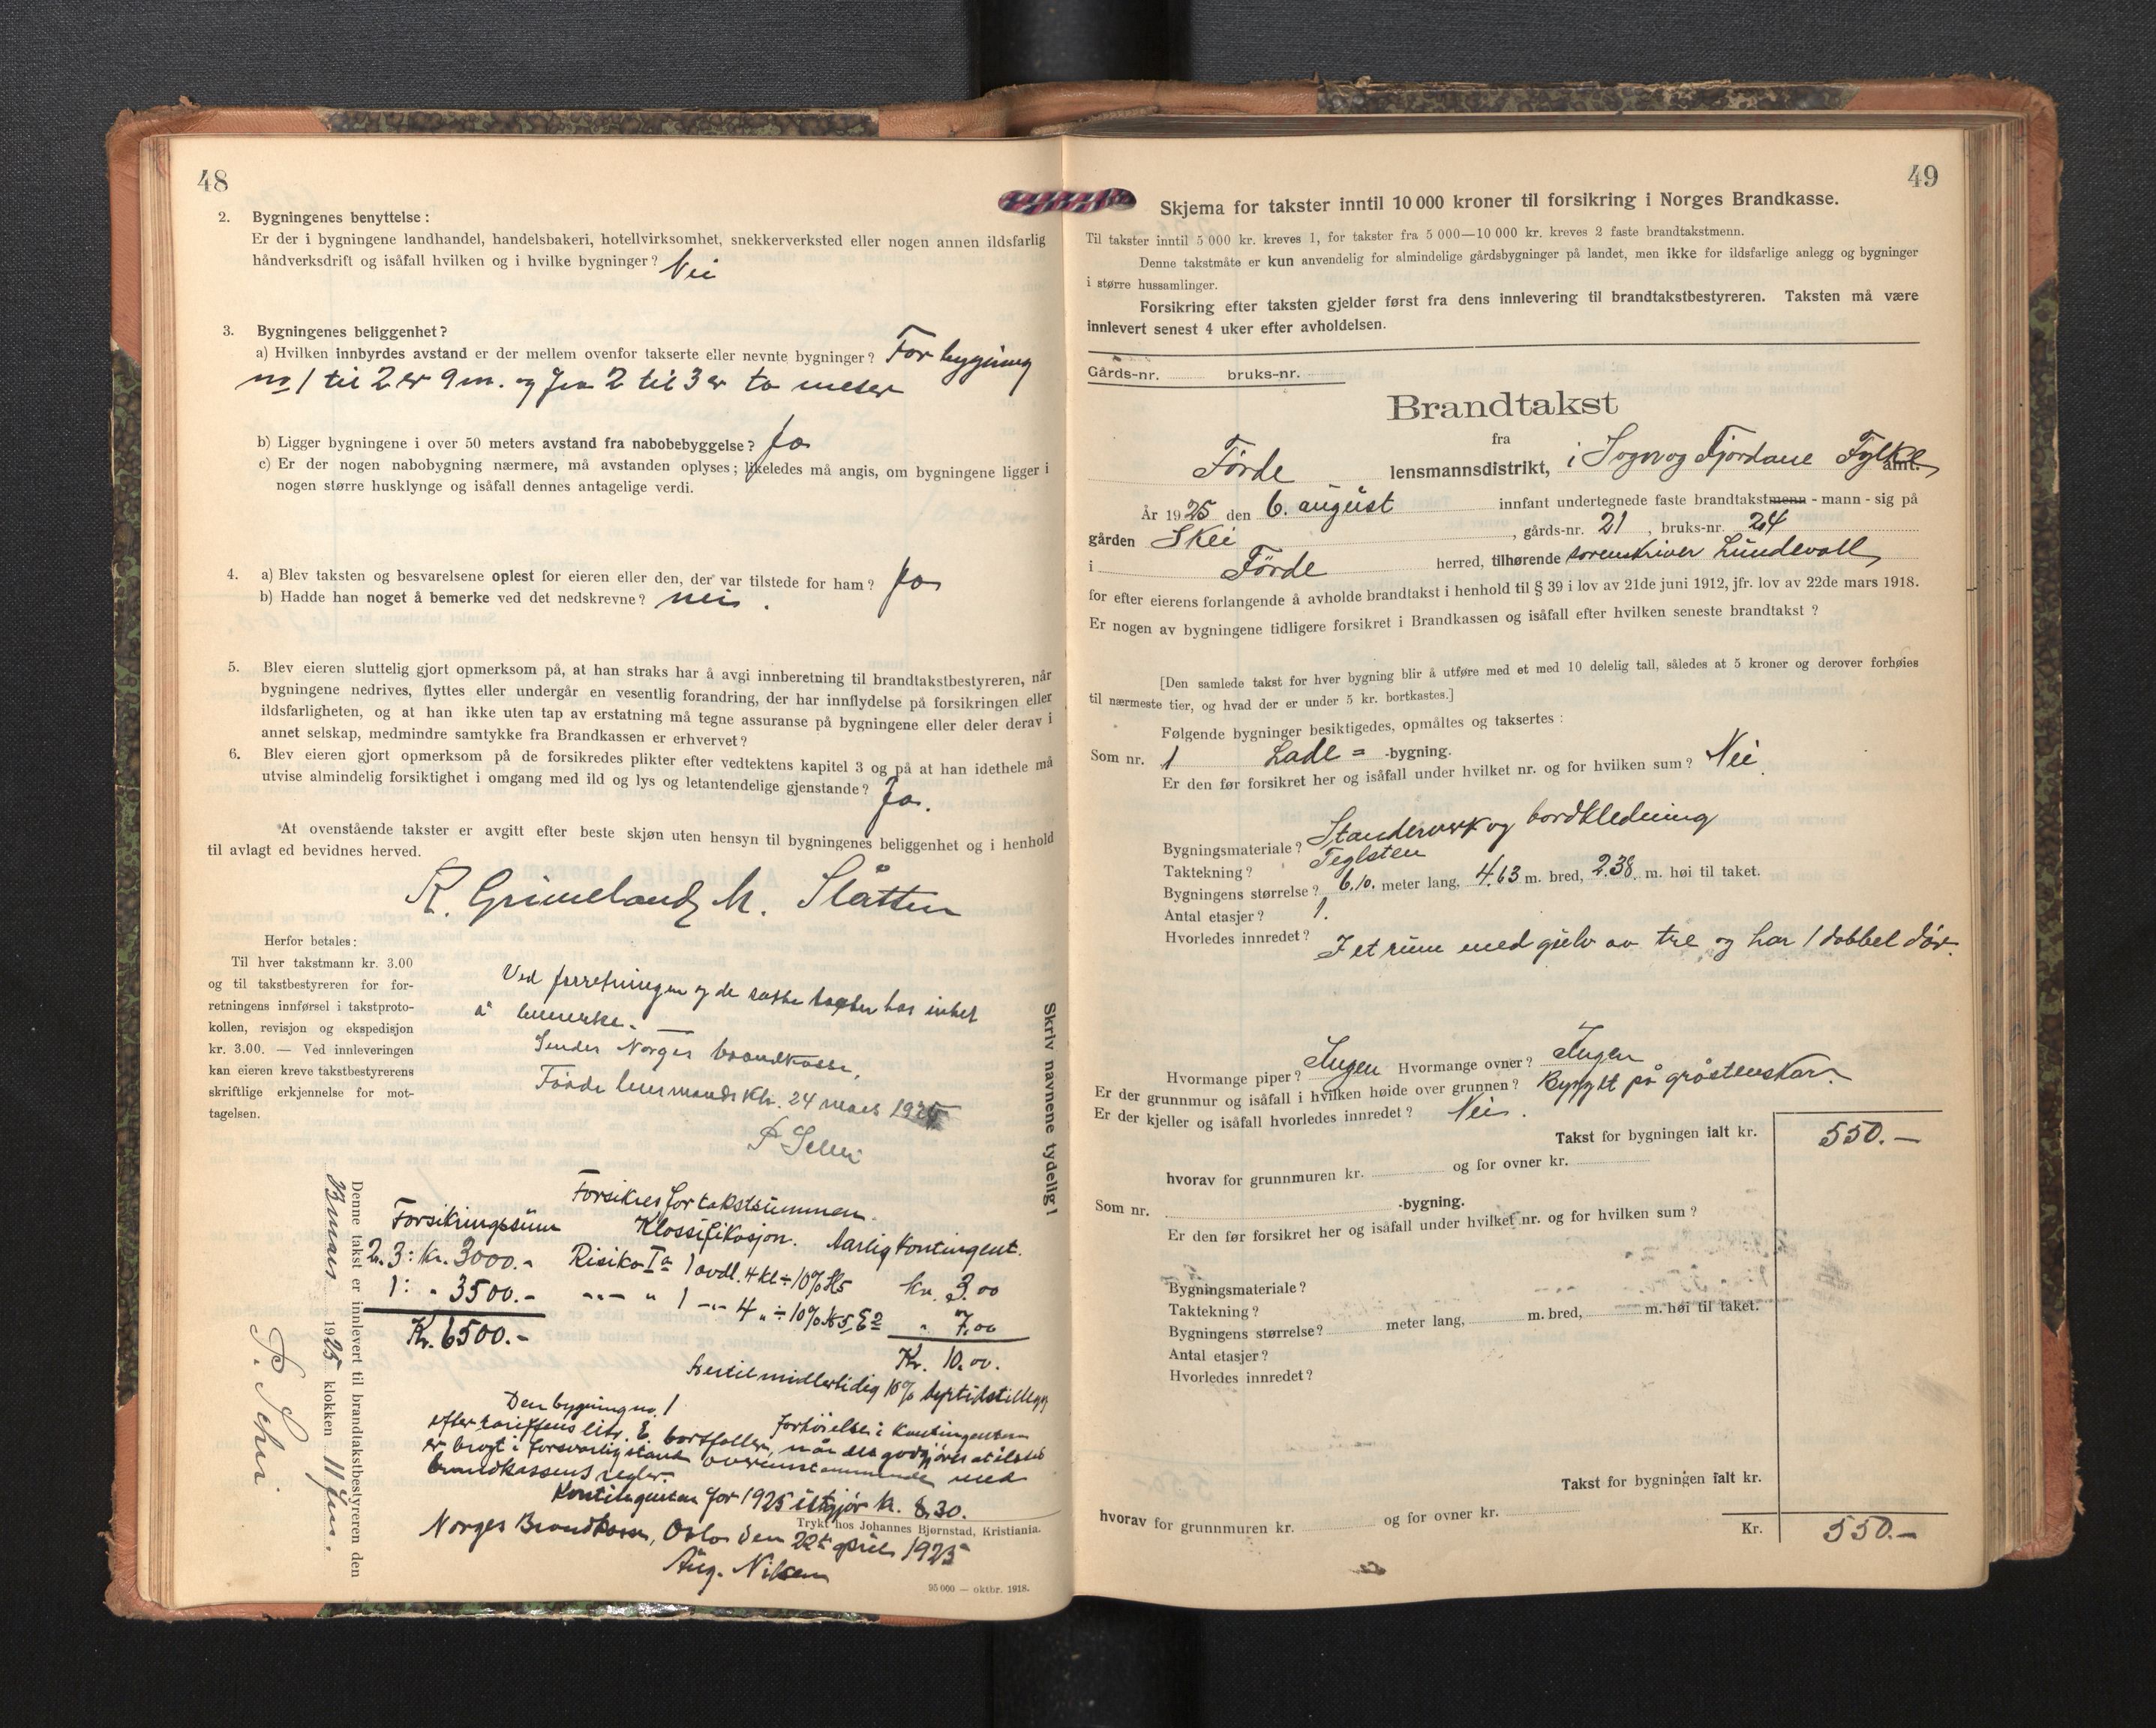 48
2. Bygningenes benyttelse:
Er der i bygningene landhandel, handelsbakeri, hotellvirksomhet, snekkerverksted eller nogen annen ildsfarlig
håndverksdrift og isåfall hvilken og i hvilke bygninger? Nei
3. Bygningenes beliggenhet?
a) Hvilken innbyrdes avstand er der mellem ovenfor takserte eller nevnte bygninger? For bygning
no 1 til 2 er 9 m. og fra 2 til 3 er to meter
b) Ligger bygningene i over 50 meters avstand fra nabobebyggelse? Ja
c) Er der nogen nabobygning nærmere, må avstanden oplyses; likeledes må angis, om bygningene ligger i
nogen større husklynge og isåfall dennes antagelige verdi.
4. a) Blev taksten og besvarelsene oplest for eieren eller den, der var tilstede for ham? Ja
b) Hadde han noget å bemerke ved det nedskrevne? nei.
5. Blev eieren sluttelig gjort opmerksom på, at han straks har å avgi innberetning til brandtakstbestyreren, når
bygningene nedrives, flyttes eller undergår en vesentlig forandring, der har innflydelse på forsikringen eller
ildsfarligheten, og at han ikke uten tap av erstatning må tegne assuranse på bygningene eller deler derav i
annet selskap, medmindre samtykke fra Brandkassen er erhvervet?
6. Blev eieren gjort opmerksom på de forsikredes plikter efter vedtektens kapitel 3 og på at han idethele må
utvise almindelig forsiktighet i omgang med ild og lys og letantendelige gjenstande? Ja.
At ovenstående takster er avgitt efter beste skjøn uten hensyn til bygningenes beliggenhet og i henhold
til avlagt ed bevidnes herved.
R. Grimeland M. Slåtten
Herfor betales:
Til hver takstmann kr. 3.00
og til takstbestyreren for for-
retningens innførsel i takstproto-
kollen, revisjon og ekspedisjon
kr. 3.00. — Ved innleveringen
kan eieren kreve takstbestyrerens
skriftlige erkjennelse for mot-
tagelsen.
Ved forretningen og de satte takster har intet
å bemerke.
Sendes Norges brandkasse,
Förde lensmandsktr. 24 mars 1925
Skriv navnene tydelig!
Denne takst er innlevert til brandtakstbestyreren den
1925 klokken 11
Forsikres for takstsummen.
Forsikringssum Klassifikasjon. Aarlig Kontingent.
2. 3: Kr. 3000.- Risiko Ia 1 avdl. 4 kl ÷ 10% kr. 3.00
1: " 3500.- " 1 4 " ÷ 10% " 7.00
Kr. 6500.- Kr. 10.00.
hertil midlertidig 10% dyrtidstillegg
Den bygning no. 1 forhöielse i Kontingenten
efter tariffens litr. E. bortfaller, når det godgjøres at ildsted
er bragt i forsvarlig stand overensstemmende med
brandkassens regler.
Kontingenten for 1925 utgjör kr. 8.30.
Trykt hos Johannes Bjørnstad, Kristiania.
Norges Brandkasse, Oslo den 22 april 1925
Aug. Nilsen
95 000 — oktbr. 1918.
49
Skjema for takster inntil 10 000 kroner til forsikring i Norges Brandkasse.
Til takster inntil 5 000 kr. kreves 1, for takster fra 5 000—10 000 kr. kreves 2 faste brandtakstmenn.
Denne takstmåte er kun anvendelig for almindelige gårdsbygninger på landet, men ikke for ildsfarlige anlegg og bygninger
i større hussamlinger.
Forsikring efter taksten gjelder først fra dens innlevering til brandtakstbestyreren. Taksten må være
innlevert senest 4 uker efter avholdelsen.
Gårds-nr. bruks-nr.
Brandtakst
fra
Förde lensmannsdistrikt, i Sogn og Fjordane Fylke amt.
År 1925 den 6. august innfant undertegnede faste brandtakstmenn - mann - sig på
gården Skei, gårds-nr. 21, bruks-nr. 24
i Förde herred, tilhørende sorenskriver Lundevall
for efter eierens forlangende å avholde brandtakst i henhold til § 39 i lov av 21de juni 1912, jfr. lov av 22de mars 1918.
Er nogen av bygningene tidligere forsikret i Brandkassen og isåfall efter hvilken seneste brandtakst?
[Den samlede takst for hver bygning blir å utføre med et med 10 delelig tall, således at 5 kroner og derover forhøies
til nærmeste tier, og hvad der er under 5 kr. bortkastes.]
Følgende bygninger besiktigedes, opmåltes og taksertes:
Som nr. 1 Lade = -bygning.
Er den før forsikret her og isåfall under hvilket nr. og for hvilken sum? Nei
Bygningsmateriale? Standerverk og bordkledning
Taktekning? Teglsten
Bygningens størrelse? 6.10. meter lang, 4.63 m. bred, 2.38. m. høi til taket.
Antal etasjer? 1.
Hvorledes innredet? I et rum med gulv av tre og har 1 dobbel dör.
Hvormange piper? Ingen Hvormange ovner? Ingen
Er der grunnmur og isåfall i hvilken høide over grunnen? Bygget på gråstenskar.
Er der kjeller og isåfall hvorledes innredet? Nei.
Takst for bygningen ialt kr. 550.—
hvorav for grunnmuren kr. og for ovner kr.
Som nr. -bygning.
Er den før forsikret her og isåfall under hvilket nr. og for hvilken sum?
Bygningsmateriale?
Taktekning?
Bygningens størrelse? meter lang, m. bred, m. høi til taket.
Antal etasjer?
Hvorledes innredet?
Takst for bygningen ialt kr.
hvorav for grunnmuren kr. og for ovner kr.
Kr. 550.—